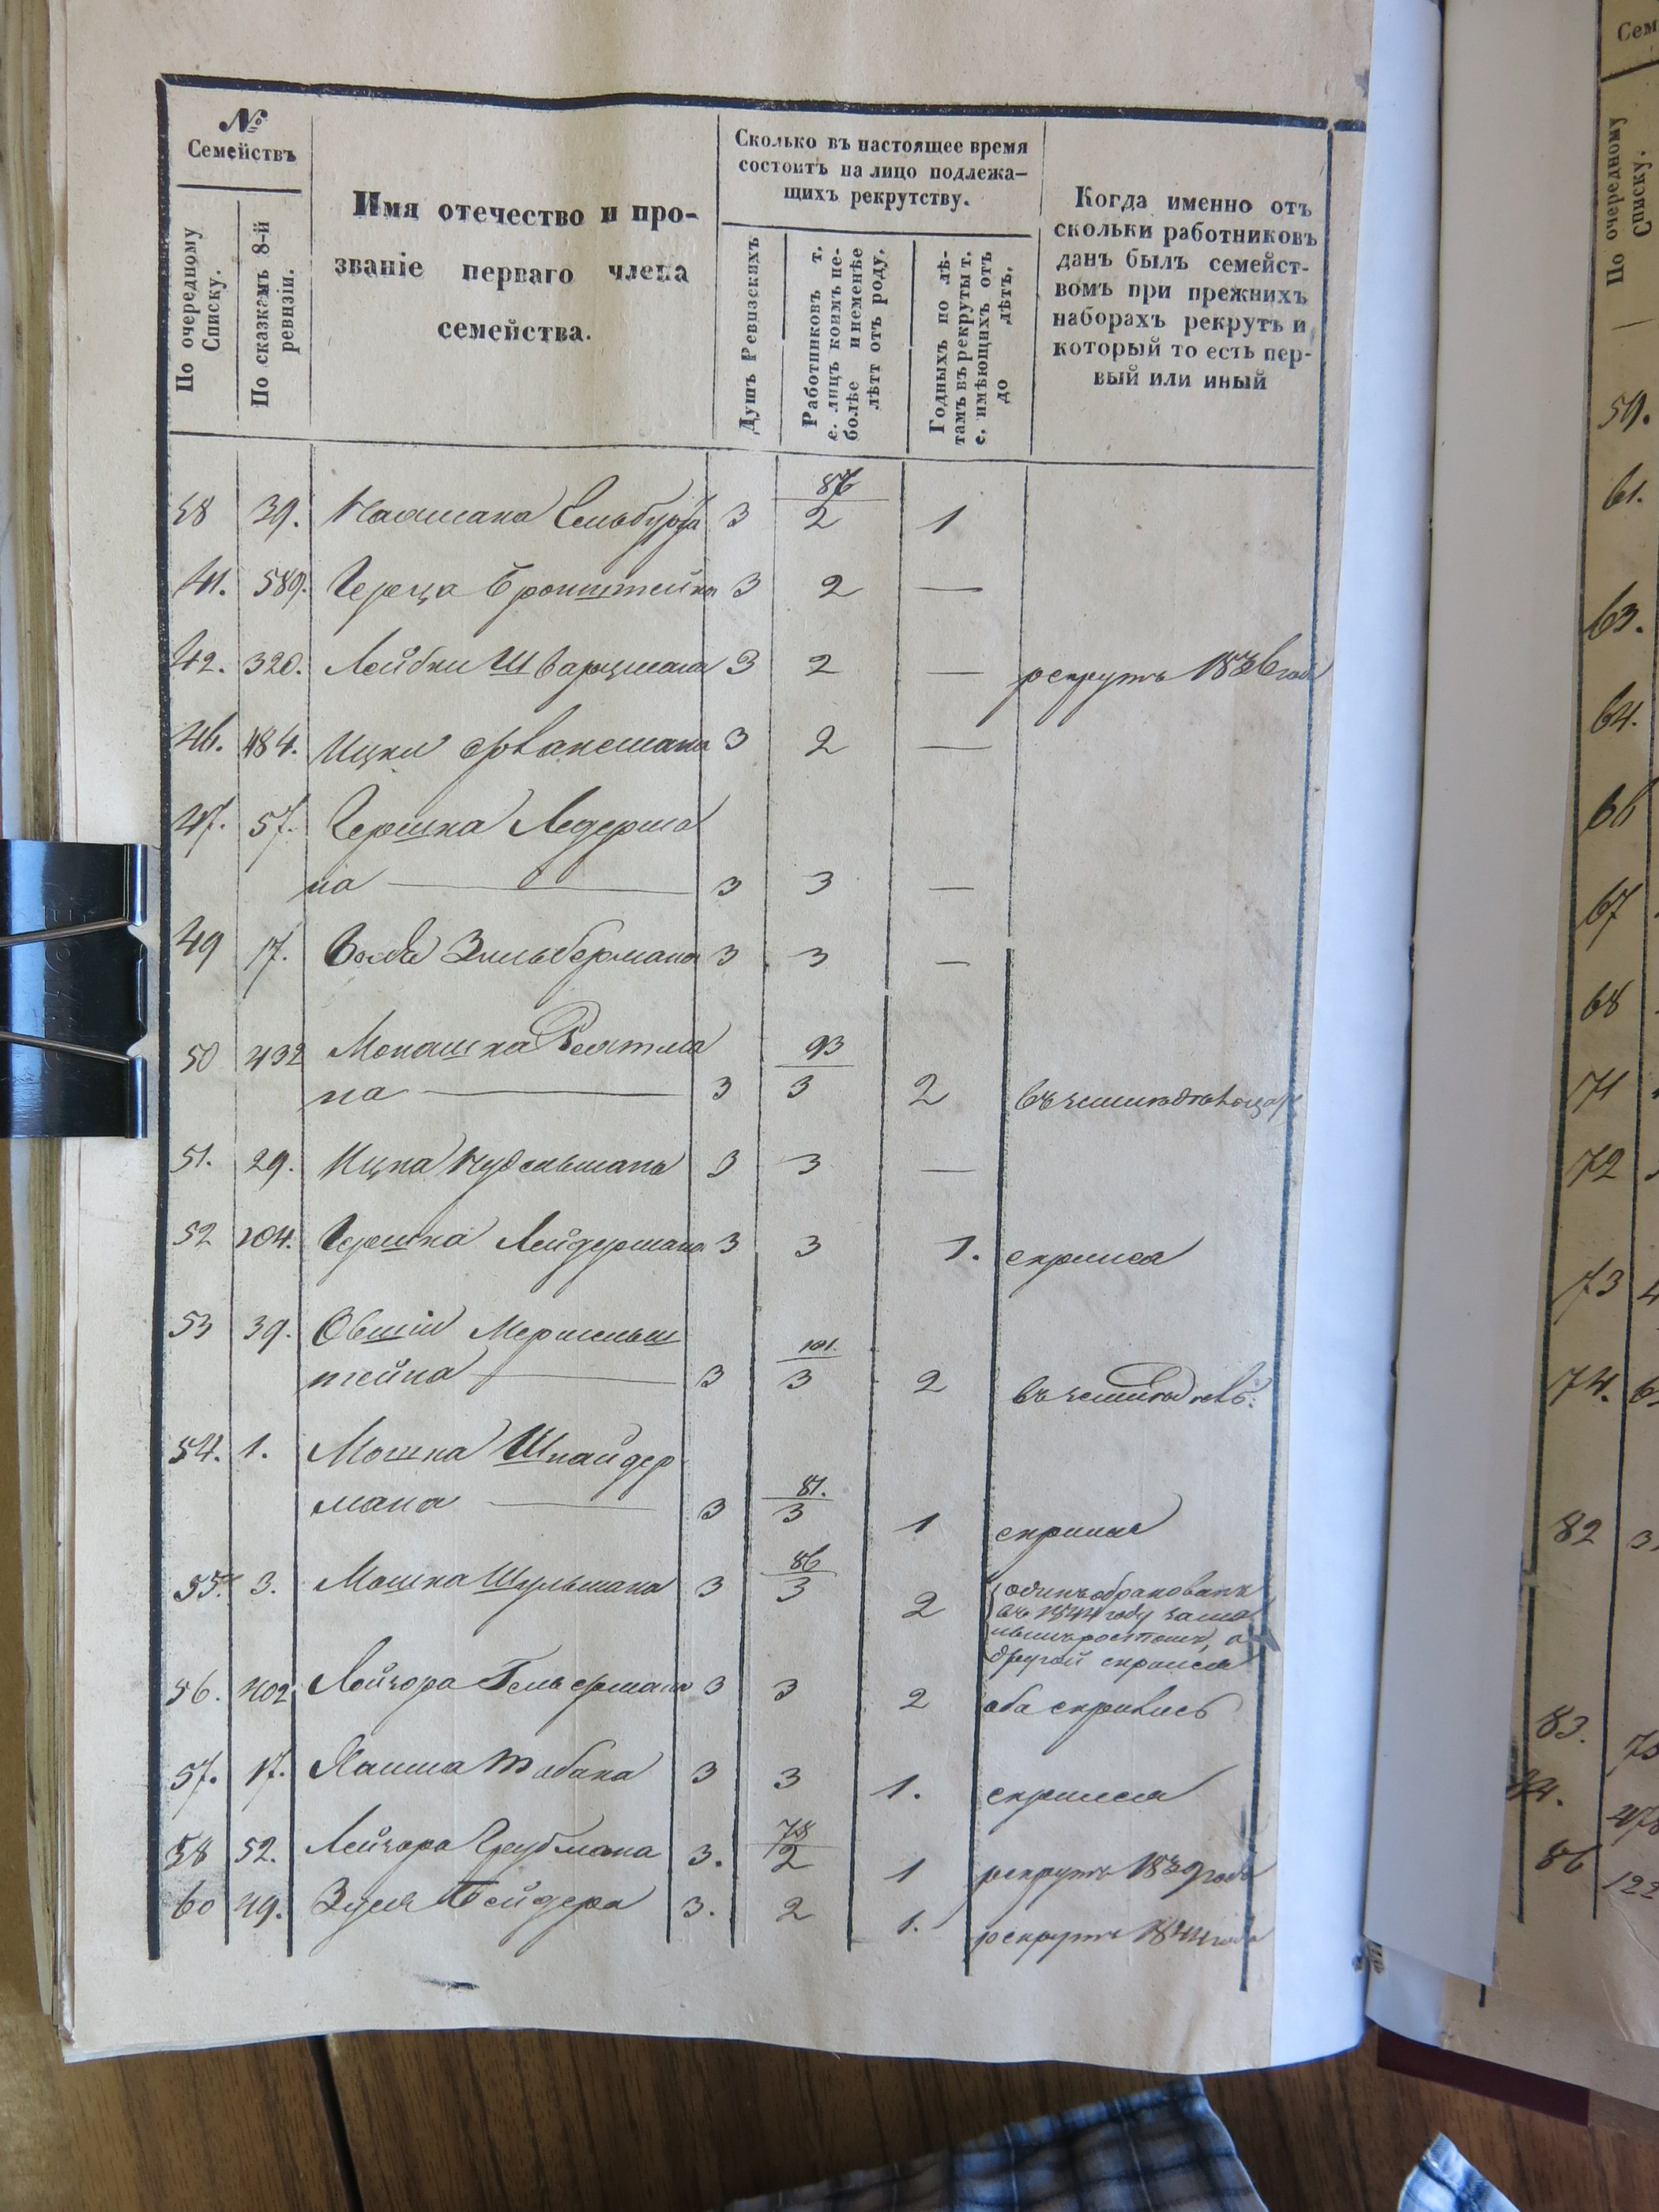 №
Семействъ
По очередному
Списку.
По сказкамъ 8-й
ревизіи.
Имя отечество и про-
званіе перваго члена
семейства.
Сколько въ настоящее время
состоитъ на лицо подлежа-
щихъ рекрутству.
Душъ Ревизскихъ
Работниковъ т.
е. лицъ коимъ не-
болѣе и неменѣе
лѣтъ отъ роду.
Годныхъ по лѣ-
тамъ въ рекруты т.
е. имѣющихъ отъ
до лѣтъ.
Когда именно отъ
скольки работниковъ
данъ былъ семейст-
вомъ при прежнихъ
наборахъ рекрутъ и
который то есть пер-
вый или иный
86
38 39. 3 2 1
41. 589. Герца Бронштейна 3 2 —
42. 320. Лейбки Шварцмана 3 2 — рекрутъ 1836 года
46. 484. Ицки 3 2 —
47. 57. Гершка Ледерма
на — 3 3 —
49 17. Зильбермана 3 3 —
50 432 Монашка Ройтма
93
на — 3 3 2
51. 29. Ицка Нудельмана 3 3 —
52 204. Гершка Лейдермана 3 3 1. скрился
53 39. Овшіи
101.
тейна — 3 3 2
54. 1. Мошка Шнайдер
81.
мана — 3 3 1 скрился
86
55. 3. Мошка Шульмана 3 3 2 одинъ обракованъ
въ 1844 году за ма
лымъ ростомъ, а
другой скрился
56. 402 Лейзора 3 3 2 оба скрились
57. 17. Табака 3 3 1. скрился
78
58 52. Лейзора Грубмана 3. 2 1 рекрутъ 1839 года
60 49. Зуся Бейдера 3. 2 1. рекрутъ 1844 года
Сем
По очередному
Списку.
59.
61.
63.
64.
66
67
68
71
72
73 4
74. 6
82 3
83.
84. 478
86 122